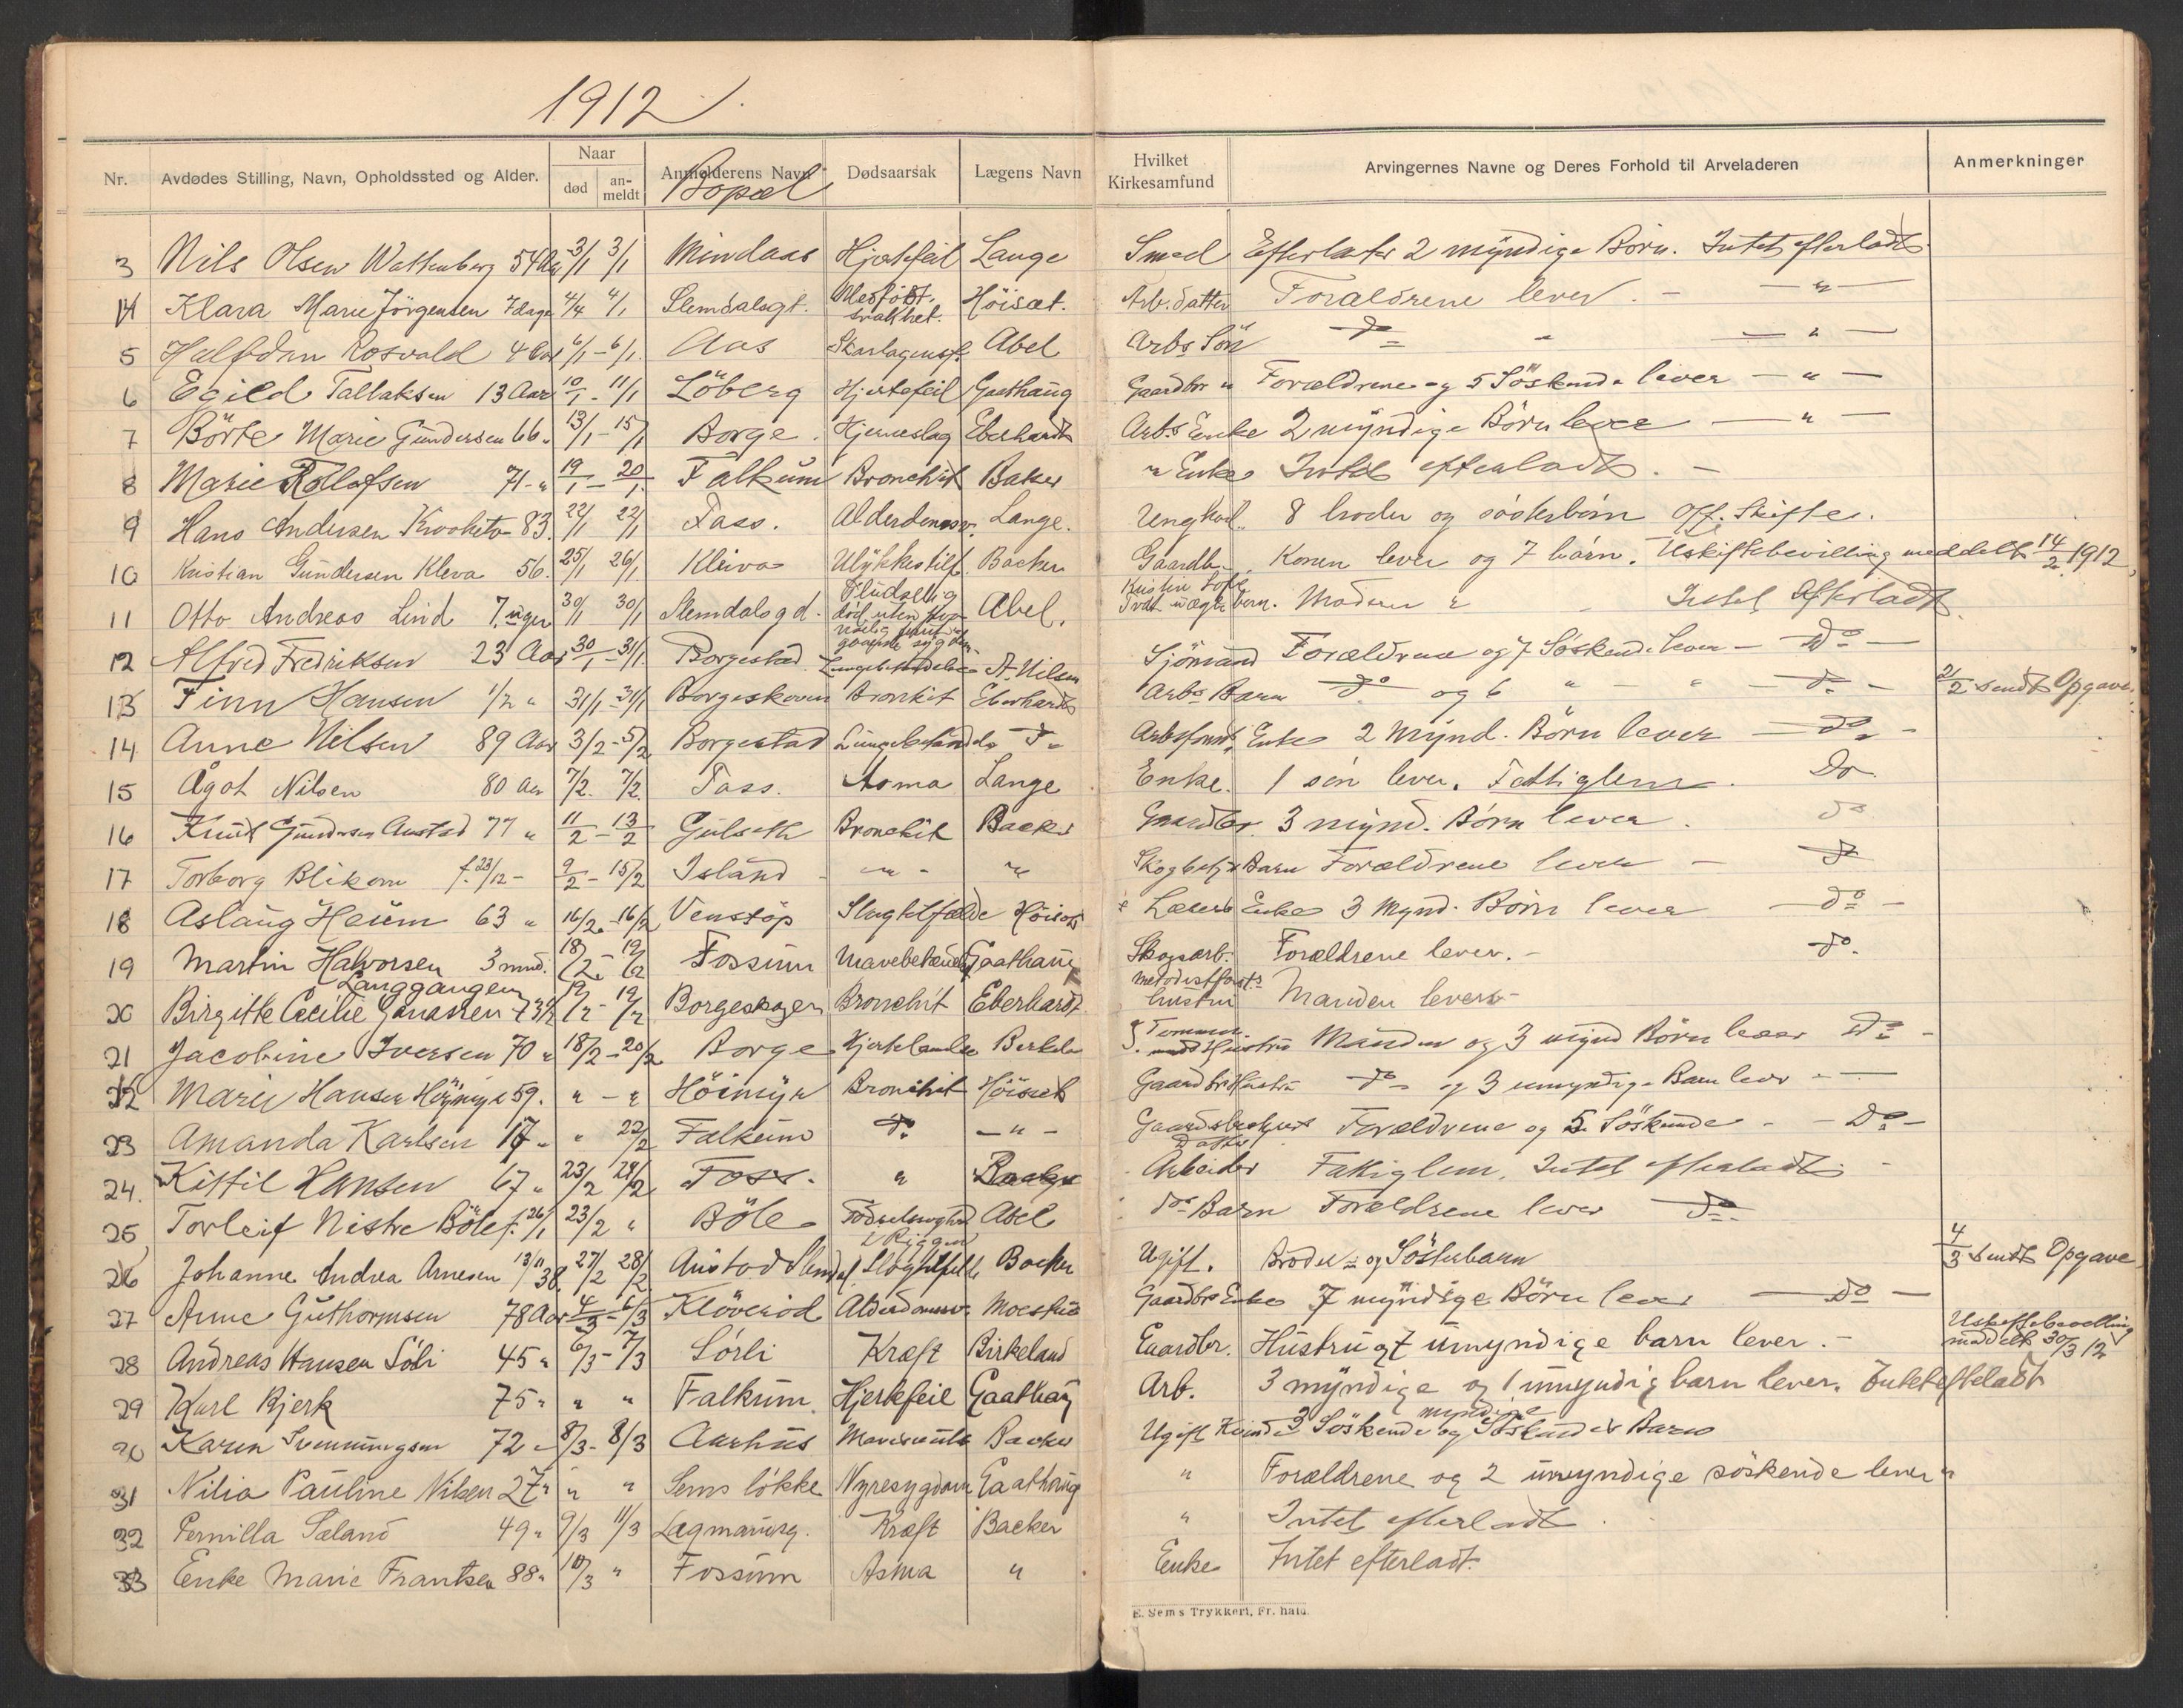 1912
Nr. Avdødes Stilling, Navn, Opholdssted og Alder. Naar død an-meldt Anmelderens Navn Bopæl Dødsaarsak Lægens Navn Hvilket Kirkesamfund Arvingernes Navne og Deres Forhold til Arveladeren Anmerkninger
3 Nils Olsen Wattenberg 54 Aar 3/1 3/1 Mindaas Hjertefeil Lange Smed Efterlater 2 myndige Börn. Intet efterladt
4 Klara Marie Jörgensen 7 dage 4/4 4/1 Slemdalsgt. Medfödt svakhet. Höisæt. Arb. datter Forældrene lever. - - " -
5 Halfdan Rosvald 4 Aar 6/1 - 6/1. Aas Skarlagensf. Abel Arbs Sön do " - " -
6 Egild Tallaksen 13 Aar 10/1 - 11/1 Löberg Hjertefeil Gaathaug Gaardbr " Forældrene og 5 Söskende lever - " -
7 Börte Marie Gundersen 66 " 13/1 - 15/1 Borge. Hjerneslag Eberhardt Arbs Enke 2 myndige Börn lever - " -
8 Marie Rollofsen 71 - " 19/1 - 20/1. Falkum Bronchit Baker " Enke Intet efterladt. -
9 Hans Andersen 83. 22/1 22/1 Fass. Alderdomssv. Lange. Ungkarl. 8 broder og søsterbørn Off. Skifte.
10 Kristian Gundersen Kleva 56. 25/1 26/1. Kleiva Ulykkestilf. Backer Gaardb. Konen lever og 7 børn. Uskiftebevilling meddelt 14/2 1912,
11 Otto Andreas Lind 7 uger 30/1 30/1 Slemdalsgd. Pludselig död uten Abel. Kristin barn. Moderen " Intet Efterladt.
12 Alfred Fredriksen 23 Aar 30/1 - 31/1. Borgestad Lungebetændelse A. Nilsen Sjömand Forældrene og 7 Söskende lever - Do -
13 Finn Hansen 1/2 " 31/1 - 31/1 Borgeskoven Bronkit Eberhardt Arbs Barn do og 6 " - " - do - 2/2 sendt Opgave
14 Anne Nilsen 89 Aar 3/2 - 5/2 Borgestad Lungebetændelse do Enke 2 Mynd. Börn lever - do -
15 Ågot Nilsen 80 Aar 7/2. 7/2. Fass. Asma Lange Enke. 1 søn lever. Fattiglem. Do
16 Knut Gundersen Austad 77 " 11/2 - 13/2 Gulseth Bronchit Backer Gaardbr. 3 mynd. Børn lever. do
17 Torborg Blikom f. 23/12 - 9/2 - 15/2 Island - " - " Barn Forældrene lever - do
18 Aslaug Heum 63 " 16/2. - 16/2 Venstöp Slagtilfælde Höisæt Enke 3 Mynd. Börn lever - do -
19 Martin Halvorsen 3 mnd. 18/2 - 19/2 Fossum Mavebetænd. Gaathaug Skogsarb. Forældrene lever. - do.
20 Birgitte Cecilie Jonassen Langgangen 73 1/2 19/2 - 19/2 Borgeskogen Bronchit Eberhardt Metodistforst. hustru Manden lever -
21 Jacobine Iversen 70 " 18/2 - 20/2 Borge Hjertelamelse Hustru Manden og 3 mynd Börn lever Do -
22 Marie Hansen Höimyr 59. " - " Höimyr Bronchit Höisæt Gaardbr Hustru do og 3 umyndige Barn lever - -
23 Amanda Karlsen 17 " " 22/2 Falkum do - " - Gaardsbrukers Datter Forældrene og 5 Söskende - - Do -
24. Kittil Hansen 67 " 23/2 24/2 Foss. " Backer Arbeider Fattiglem, Intet efterladt. -
25 Torleif Nistre Böle f. 26/1 23/2 " Böle Födselssvaghed Abel do Barn Forældrene lever do
26 Johanne Andrea Arnesen 13/11 38 27/2 28/2 Austad Slemdal Slagtilfelle Backer Ugift. Broder- og Söster barn 4/3 sendt Opgave
27 Anne Guthormsen 78 Aar 4/3 - 6/3 Klöveröd Alderdomssv. Moestue Gaardbrs Enke 7 myndige Börn lever - do -
28 Andreas Hansen Söli 45 " 6/3 - 7/3 Sörli Kræft Birkeland Gaardbr. Hustru og 7 umyndige barn lever. - Uskiftebevilling meddelt 30/3 12
29 Karl Bjerk 75 " " " Falkum. Hjertefeil Gaathaug Arb. 3 myndige og 1 umyndig barn lever. Intet efterladt
30 Karen Svenningsen 72 " 8/3 - 8/3 Aarhus Backer Ugift Kvinde 3 Söskende og myndige Söskende Barn
31 Nilia Pauline Nilsen 27 " " " Sems lökke Nyresygdom Gaathaug " Forældrene og 2 umyndige söskende lever "
32 Pernilla Sæland 49 " 9/3 11/3 Lagmansg. Kræft Backer " Intet efterladt.
33 Enke Marie Frantsen 88 " 10/3 " Fossum Astma " Enke Intet efterladt.
E. Sems Trykkeri, Fr.hald.